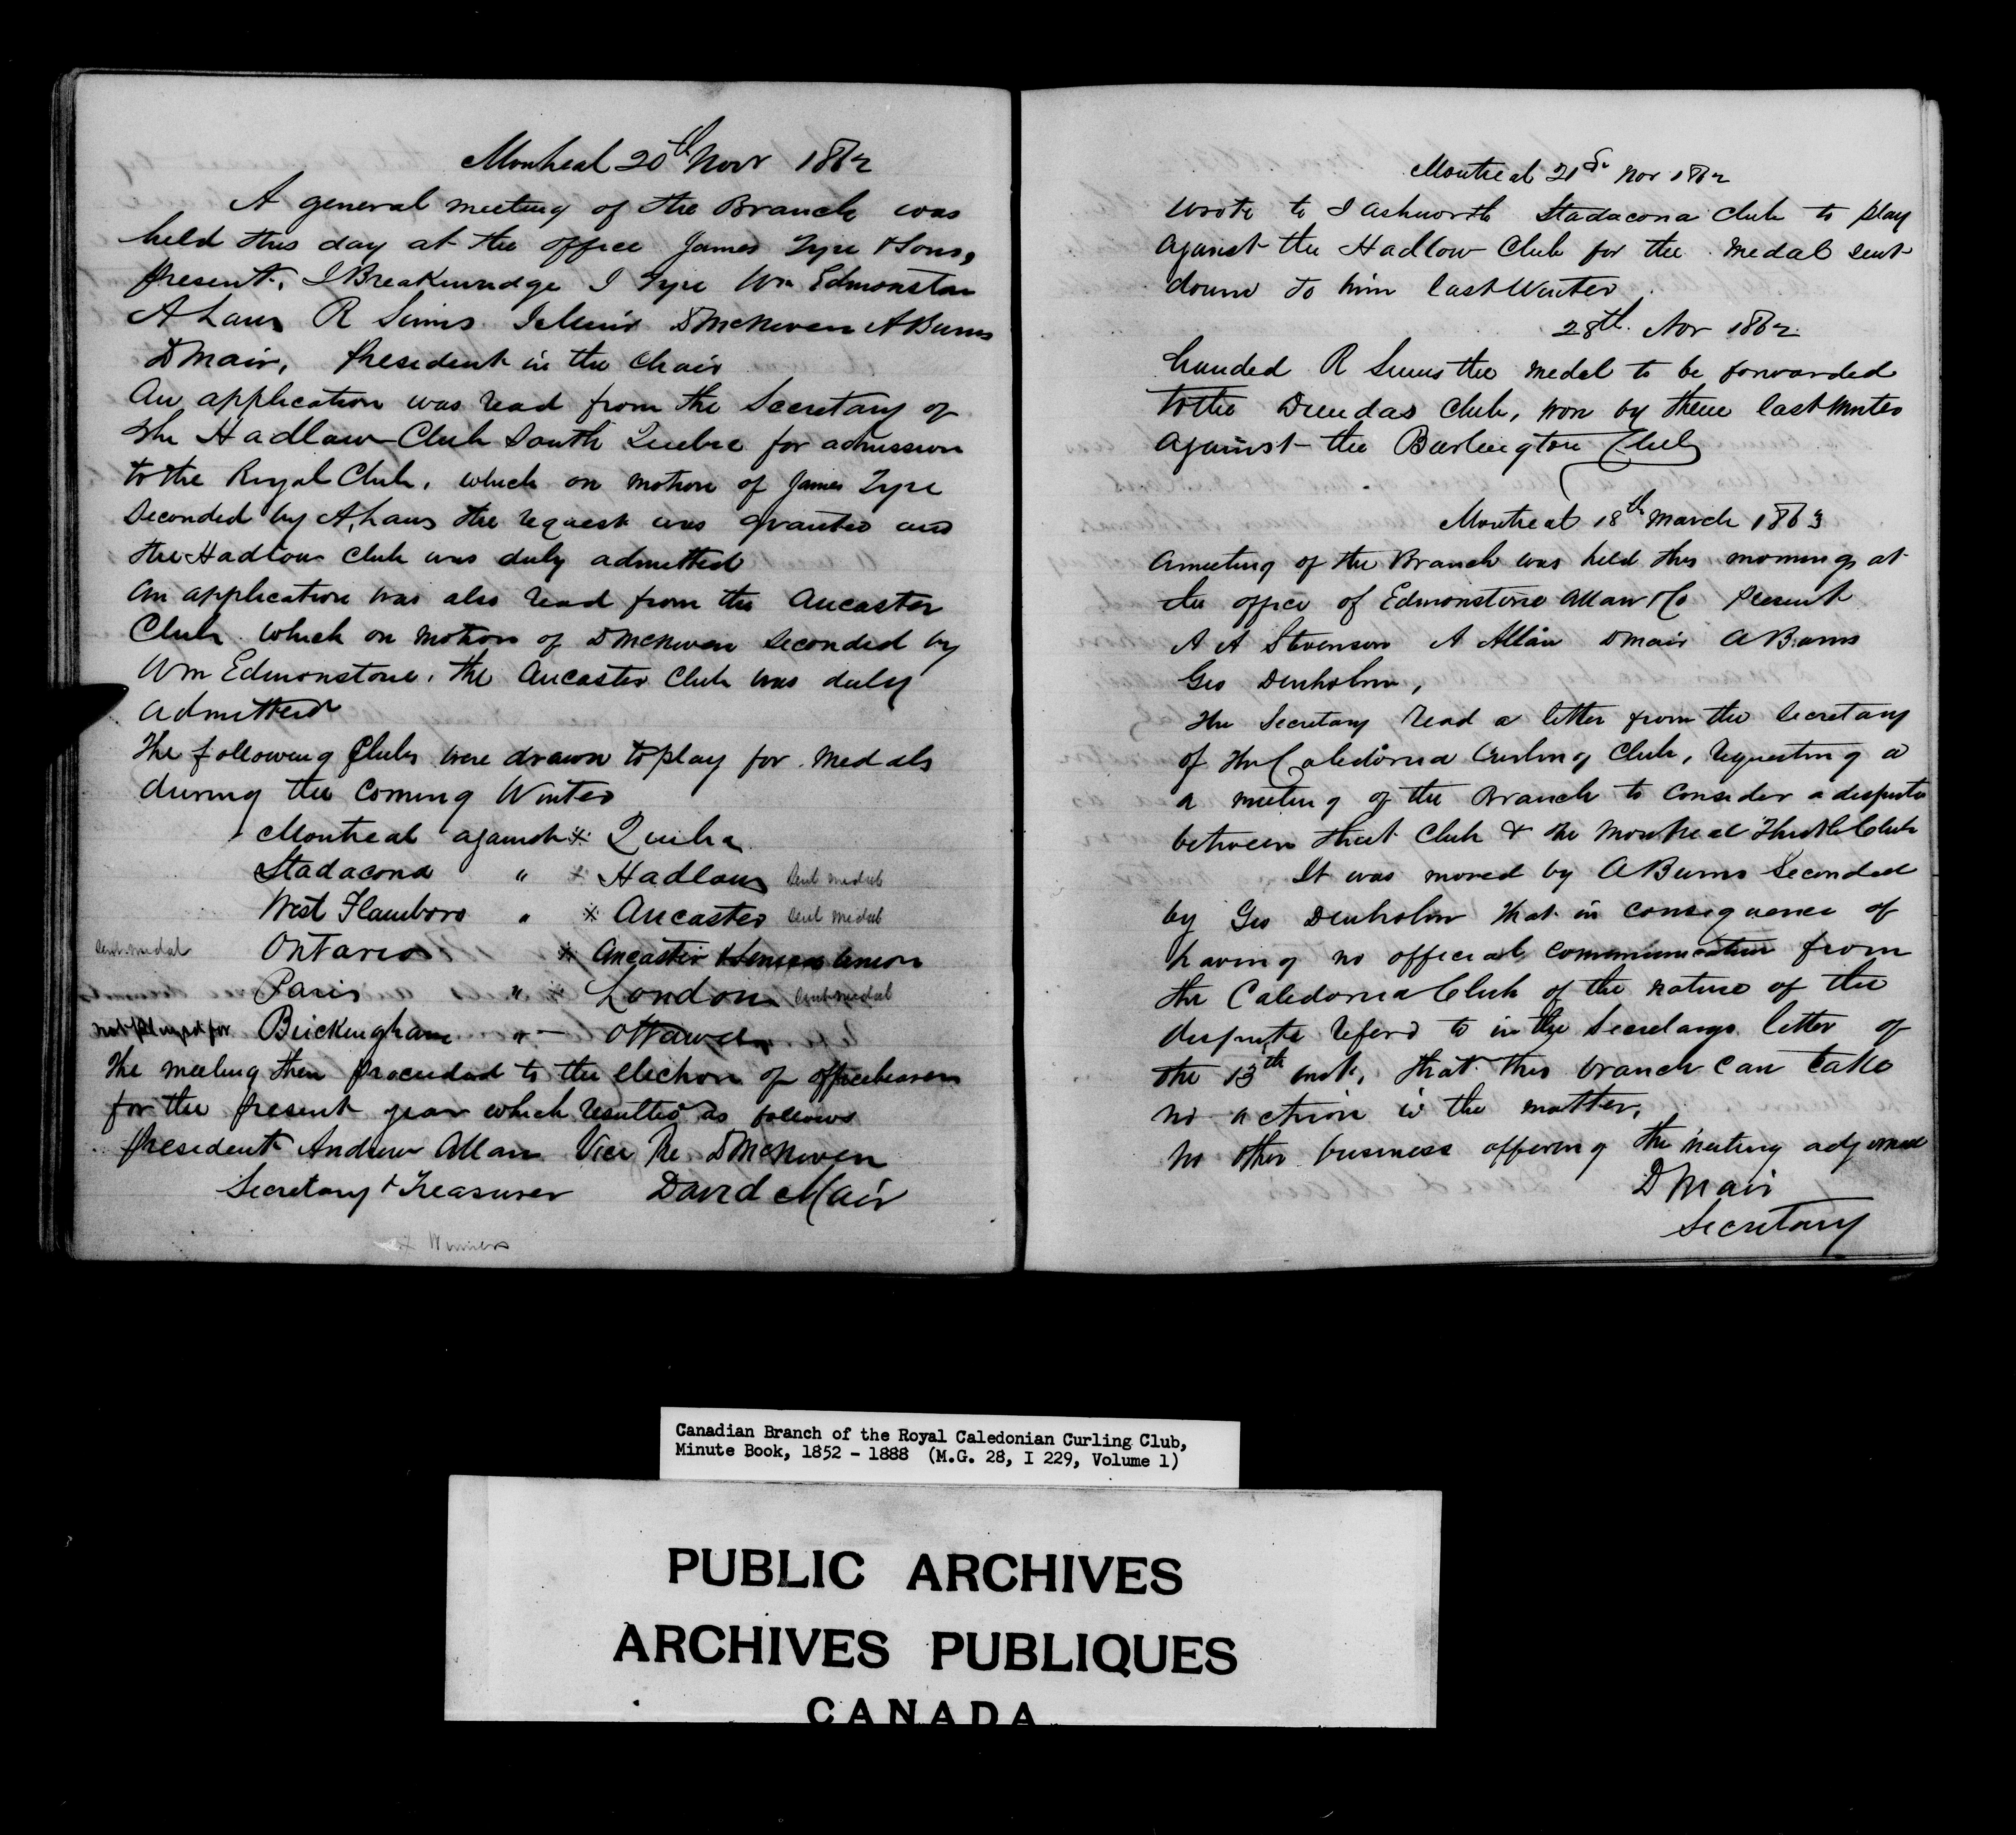 Montreal 20th Novr 1862
A general meeting of the Branch was
held this day at the office James Tyre & Sons,
present, I Breakenridge I Tyre Wm Edmonston
A Law R Sims D McNiven A Burns
D Mair, President in the Chair
An application was read from the Secretary of
the Hadlow Club South Quebec for admission
to the Royal Club, which on motion of James Tyre
Seconded by A. Law the request was granted and
the Hadlow Club was duly admitted
An application was also read from the Ancaster
Club which on motion of D McNiven Seconded by
Wm Edmonstone, the Ancaster Club was duly
admitted
The following Clubs were drawn to play for Medals
during the Coming Winter
Montreal against x Quebec
Stadacona " x Hadlow Sent medal
West Flamboro " x Ancaster Sent medal
Sent medal Ontario x Ancaster Union
Paris " x London Sent medal
not played for Buckingham " - Ottawa
The meeting then proceeded to the election of officebearers
for the present year which resulted as follows
President Andrew Allan Vice Pre D McNiven
Secretary & Treasurer David Mair
x Winners
Montreal 21st Nov 1862
wrote to I Ashworth Stadacona Club to play
against the Hadlow Club for the medal sent
down to him last Winter
28th Nov 1862
handed R Sims the medal to be forwarded
to the Dundas Club, won by them last winter
against the Burlington Club
Montreal 18th March 1863
A meeting of the Branch was held this morning at
the office of Edmonstone Allan & Co Present
A A Stevenson A Allan D Mair A Burns
Geo Denholm,
The Secretary read a letter from the Secretary
of the Caledonia Curling Club, requesting a
a meeting of the Branch to consider a dispute
between that Club & the Montreal Thistle Club
It was moved by A Burns Seconded
by Geo Denholm that in consequence of
having no official communication from
the Caledonia Club of the nature of the
dispute referd to in the Secretarys letter of
the 13th inst, that this branch can take
no action in the matter,
No other business offering the meeting adjorned
D Mair
Secretary
Canadian Branch of the Royal Caledonian Curling Club,
Minute Book, 1852 - 1888 (M.G. 28, I 229, Volume 1)
PUBLIC ARCHIVES
ARCHIVES PUBLIQUES
CANADA